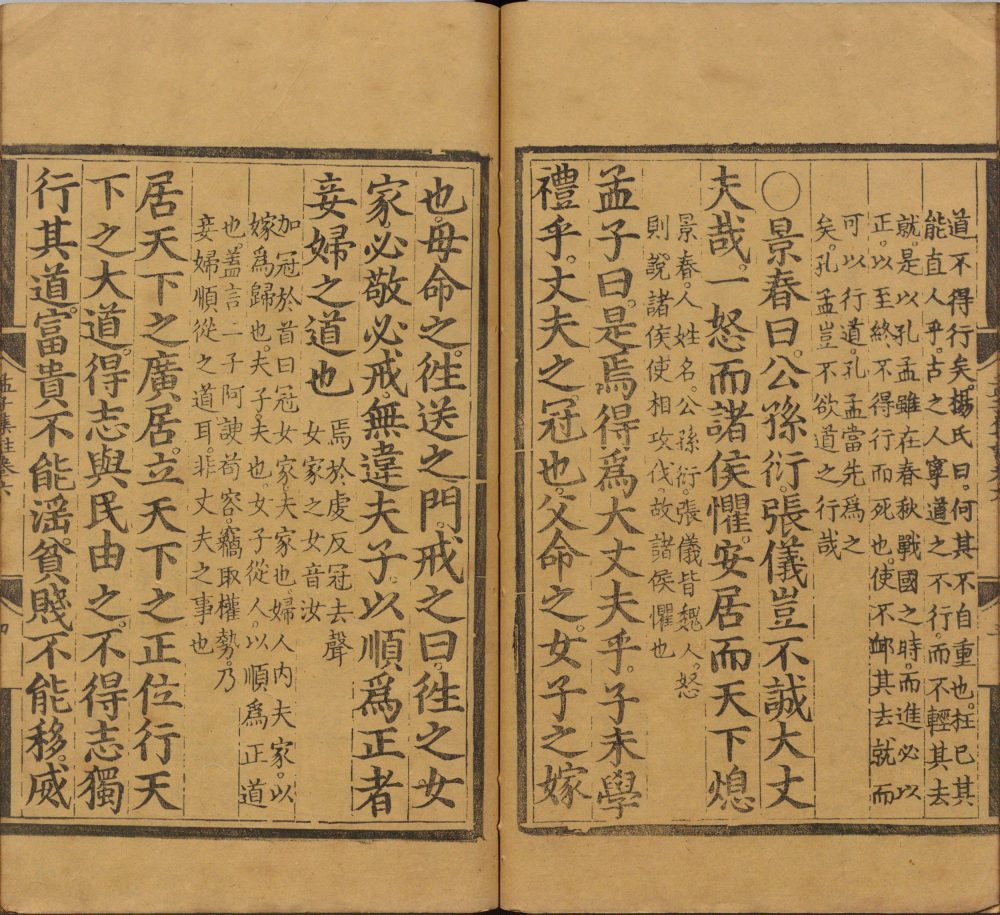 道不得行矣。楊氏曰。何其不自重也。枉已其
能直人乎。古之人寧道之不行。而不輕其去
就。是以孔孟雖在春秋戰國之時。而進必以
正。以至終不得行而死也。使不卹其去就而
可以行道。孔孟當先爲之
矣。孔孟豈不欲道之行哉
○景春曰。公孫衍。張儀豈不誠大丈
夫哉。一怒而諸侯懼。安居而天下熄
景春。人姓名。公孫衍。張儀皆魏人。怒
則說諸侯使相攻伐。故諸侯懼也
孟子曰。是焉得爲大丈夫乎。子未學
禮乎。丈夫之冠也。父命之。女子之嫁
也。母命之。徃送之門。戒之曰。徃之女
家。必敬必戒。無違夫子。以順爲正者
妾婦之道也
焉於虔反冠去聲
女家之女音汝
加冠於首曰冠女家夫家也。婦人內夫家。以
嫁爲歸也。夫子。夫也。女子從人。以順爲正道
也。蓋言二子阿諛苟容。竊取權勢。乃
妾婦順從之道耳。非丈夫之事也
居天下之廣居。立天下之正位行天
下之大道。得志與民由之。不得志獨
行其道。富貴不能淫。貧賤不能移。威
孟子集註卷六